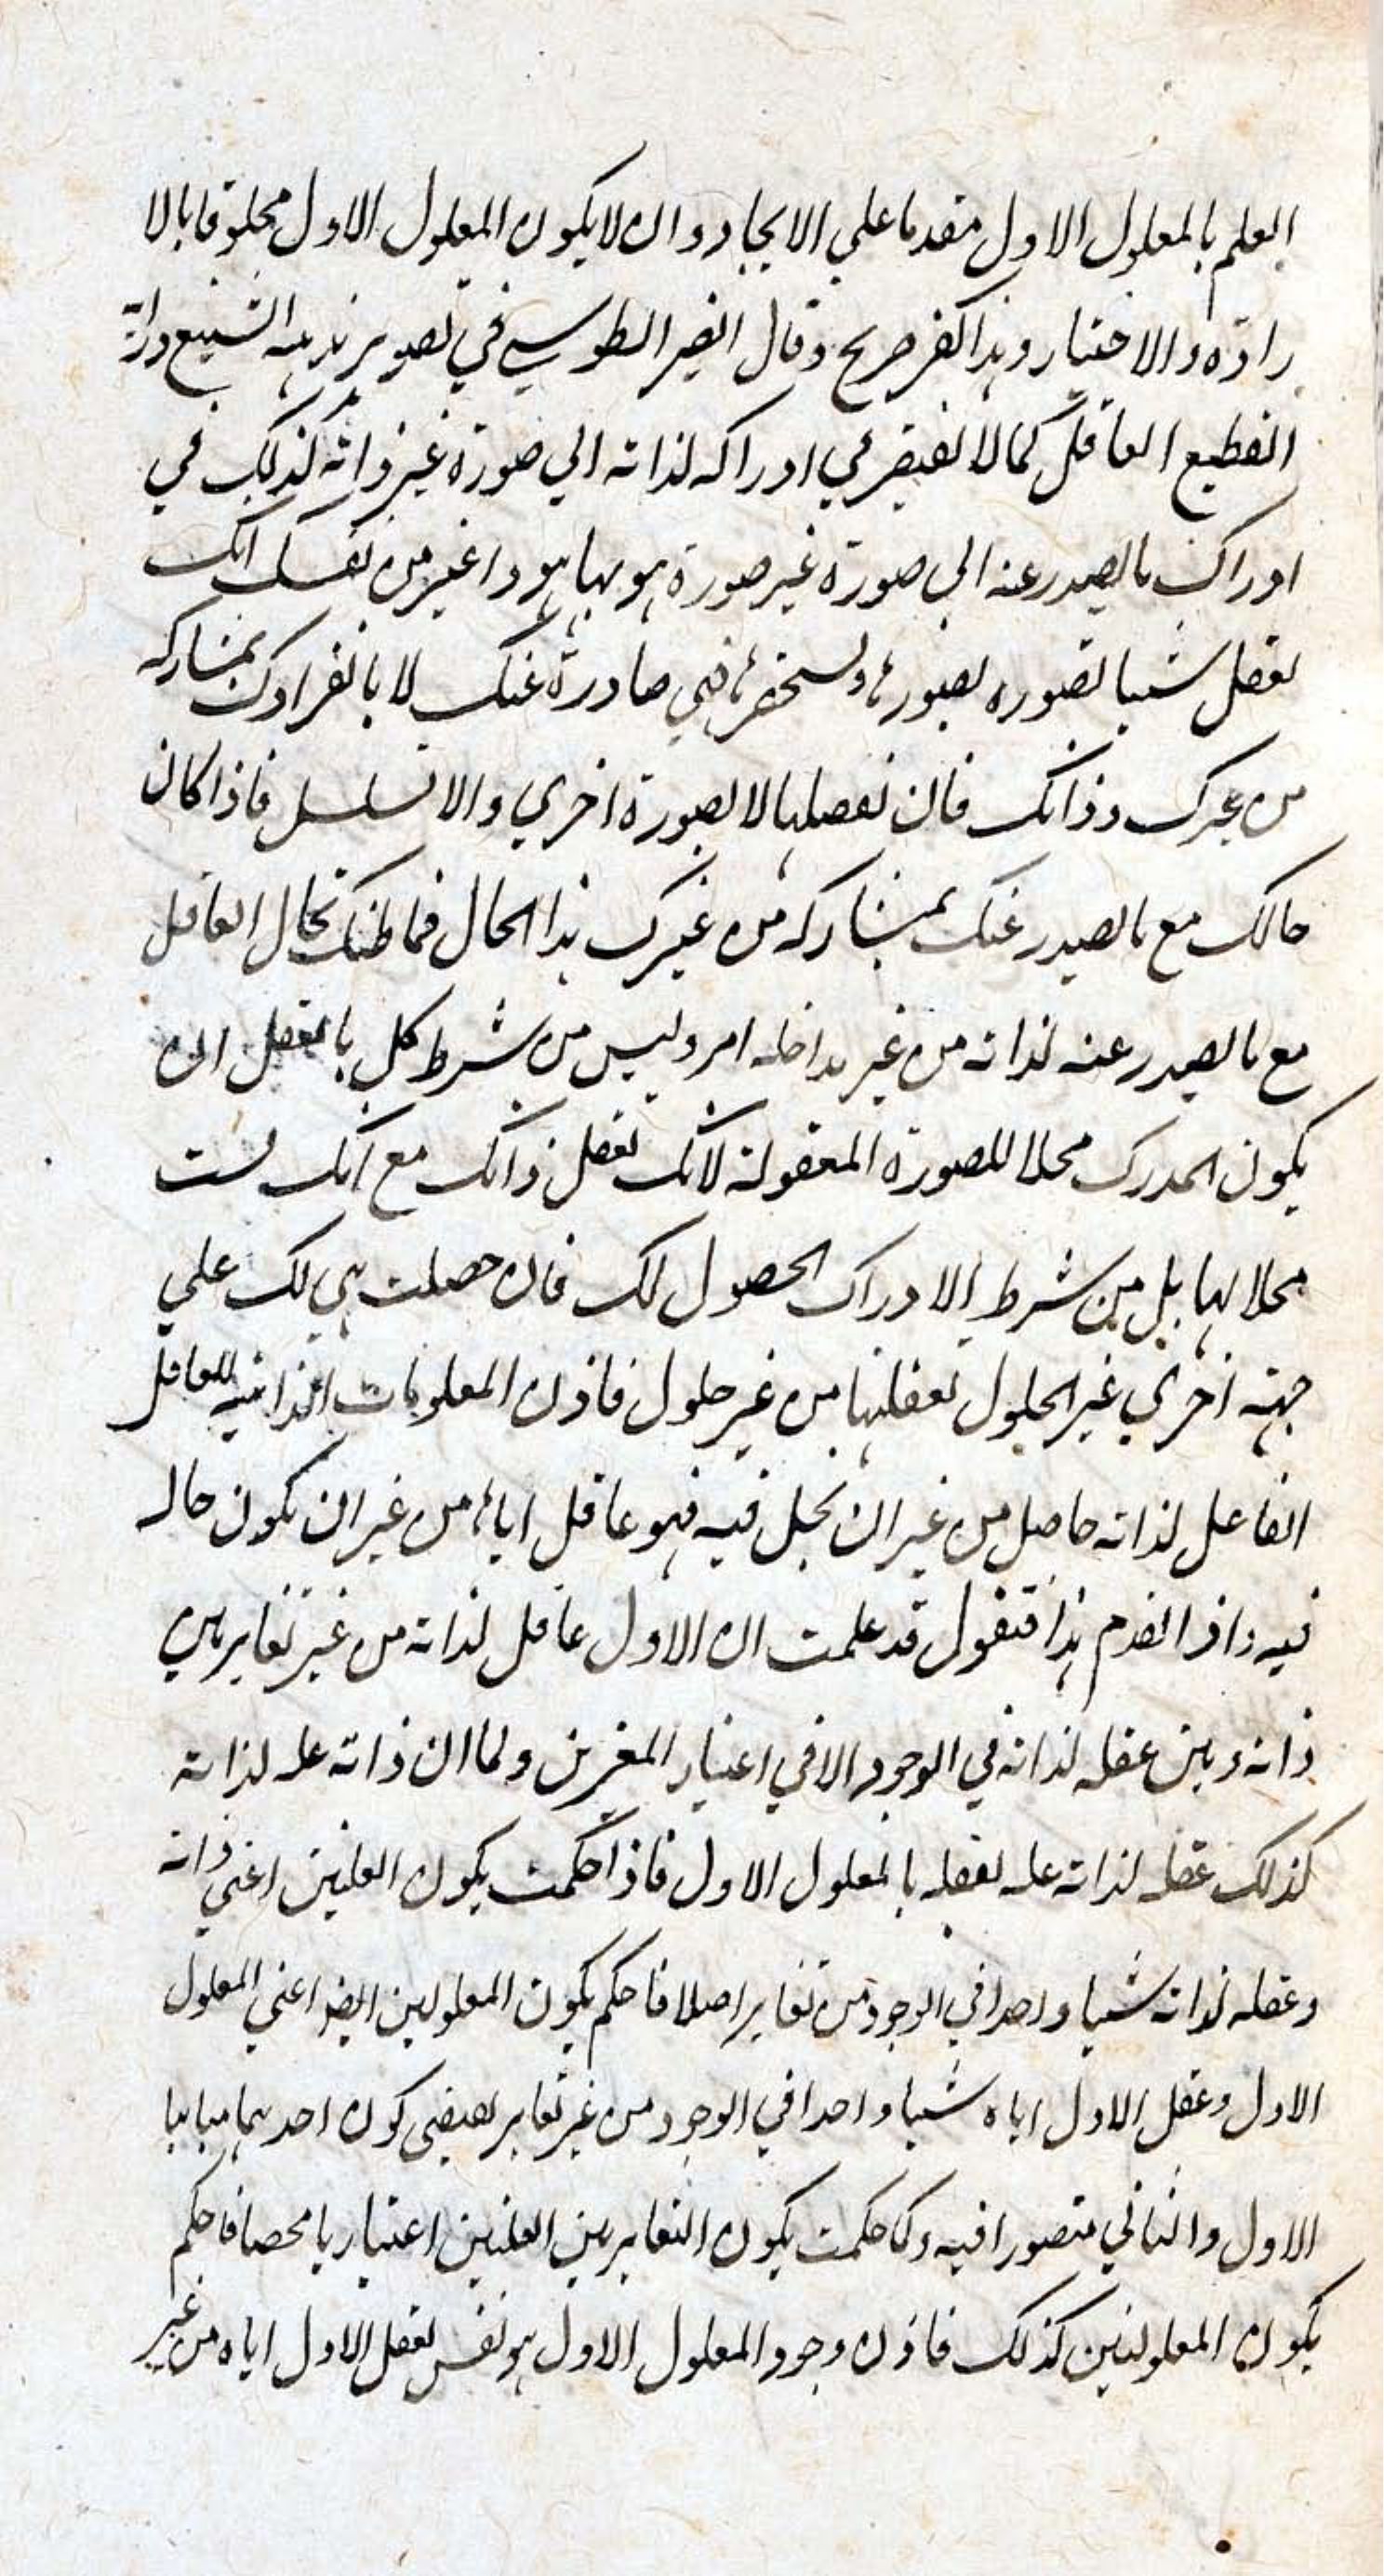 العلم بالمعلول الاول مقدما علي الايجاد وان لا يكون المعلول الاول مخلوقا بالا
رادة والاختيار وهذا كفر صريح وقال النصير الطوسي في تصوير مذهبه الشنيع ورائه
الفظيع العاقل كما لا يفتقر في ادراكه لذاته الي صورة غير ذاته كذلك في
ادراك ما يصدر عنه الي صورة غير صورة هو بها هو واعتبر من نفسك انك
تعقل شيا تتصوره بصورة وتستحضرها فهي صادرة عنك لا بانفرادك بمشاركة
من غيرك وذاتك فان تعقلها لا بصورة اخري والا تسلسل فاذا كان
حالك مع ما يصدر عنك بمشاركة من غيرك هذا الحال فما ظنك بحال العاقل
مع ما يصدر عنه لذاته من غير مداخلة امر وليس من شرط كل ما تعقل ان
يكون المدرك محلا للصورة المعقولة لانك تعقل ذاتك مع انك لست
محلا لها بل من شرط الادراك الحصول لك فان حصلت هي لك علي
جهة اخري غير الحلول تعقلتها من غير حلول فاذن المعلومات الذاتية للعاقل
الفاعل لذاته حاصل من غير ان تحل فيه فهو عاقل اياها من غير ان تكون حالة
فيه واذا تقدم هذا فنقول قد علمت ان الاول عاقل لذاته من غير تغاير بين
ذاته وبين عقله لذاته في الوجود الا في اعتبار المعتبرين ولما ان ذاته علة لذاته
كذلك عقله لذاته علة لعقله بالمعلول الاول فاذا حكمت بكون العلتين اعني ذاته
وعقله لذاته شيا واحدا في الوجود من تغاير اصلا فاحكم بكون المعلولين ايضا اعني المعلول
الاول وعقل الاول اياه شيا واحدا في الوجود من غير تغاير يقتضي كون احدهما مباينا
الاول والثاني متصورا فيه وكما حكمت بكون التغاير بين العلتين اعتباريا محضا فاحكم
بكون المعلولين كذلك فاذن وجود المعلول الاول هو نفس تعقل الاول اياه من غير